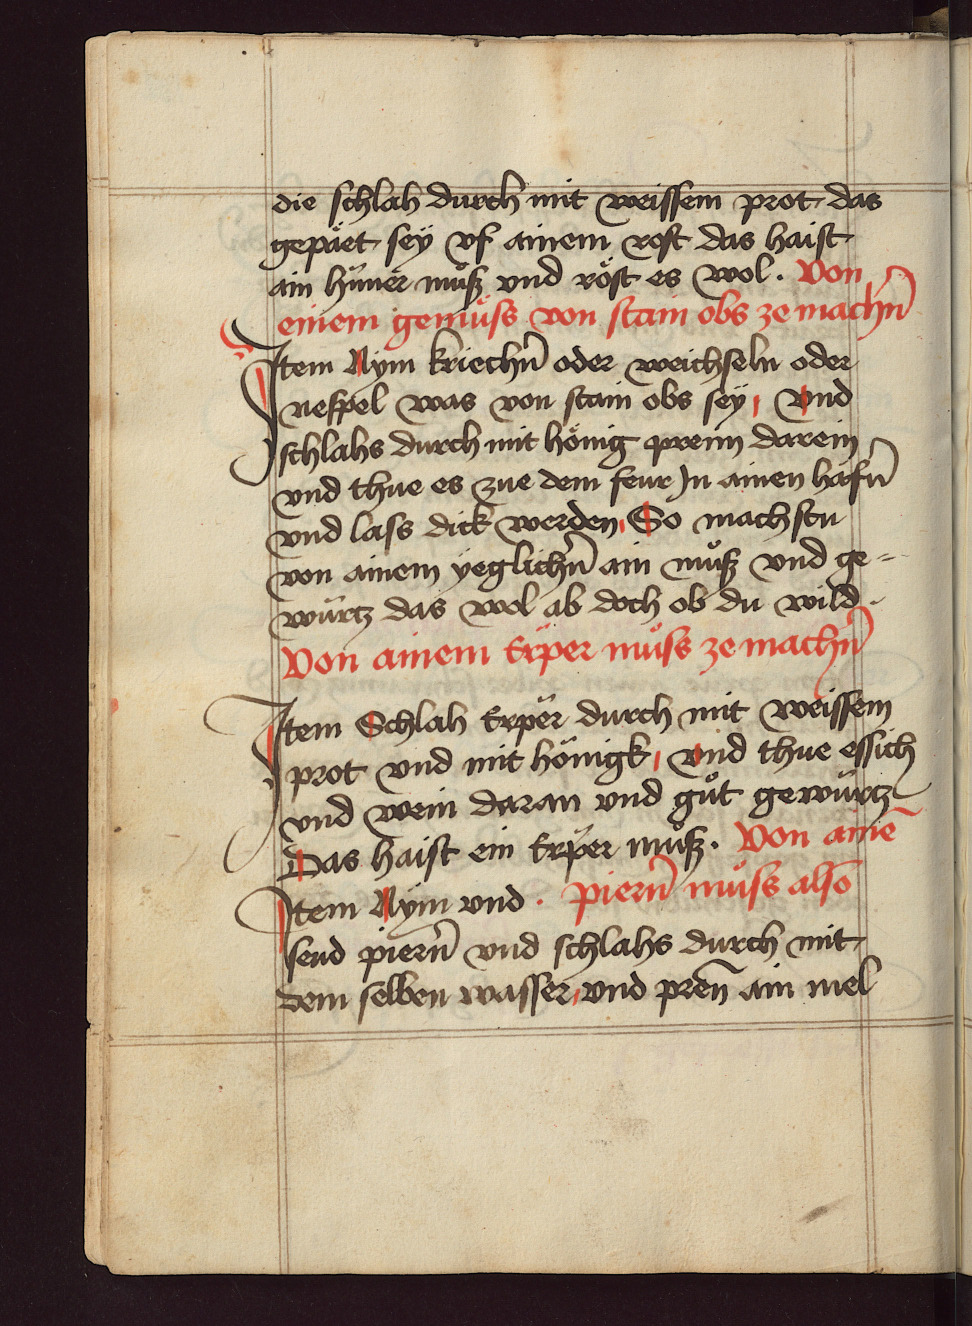 die schlah durch mit weissem prot das
gepäet seÿ vf ainem rost das haist
ain hüner muͦß vnd röst es wol . Von
einem gemüss von stain obs ze machn̄
Jtem Nym kriechn̄ oder weichseln oder
nespel was von stain obs seÿ , vnd
schlahs durch mit hönig prenn darein
vnd thue es zue dem feur Jn ainen hafn̄
vnd lass dick werden, So machstu
von ainem yeglichn̄ ain muͦß vnd ge-
würtz das wol ab doch ob du wild .
Von ainem Erper muͦss ze machn̄
Jtem Schlah Erper durch mit weissem
prot vnd mit hönigk, vnd thue essich
vnd wein daran vnd guͦt gewürtz
Das haist ein Erper muͦß . Von ainē
Jtem Nym vnd . piern̄ muͦss also
send piern̄ vnd schlahs durch mit
dem selben wasser, vnd pren̄ ain mel